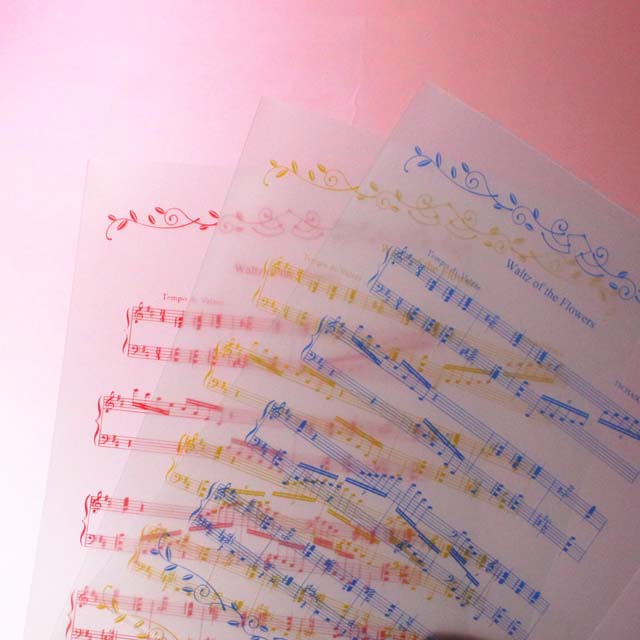 Tempo di Valse
Waltz
Tempo di Valse
Tempo di Valse
Waltz of the Flowers